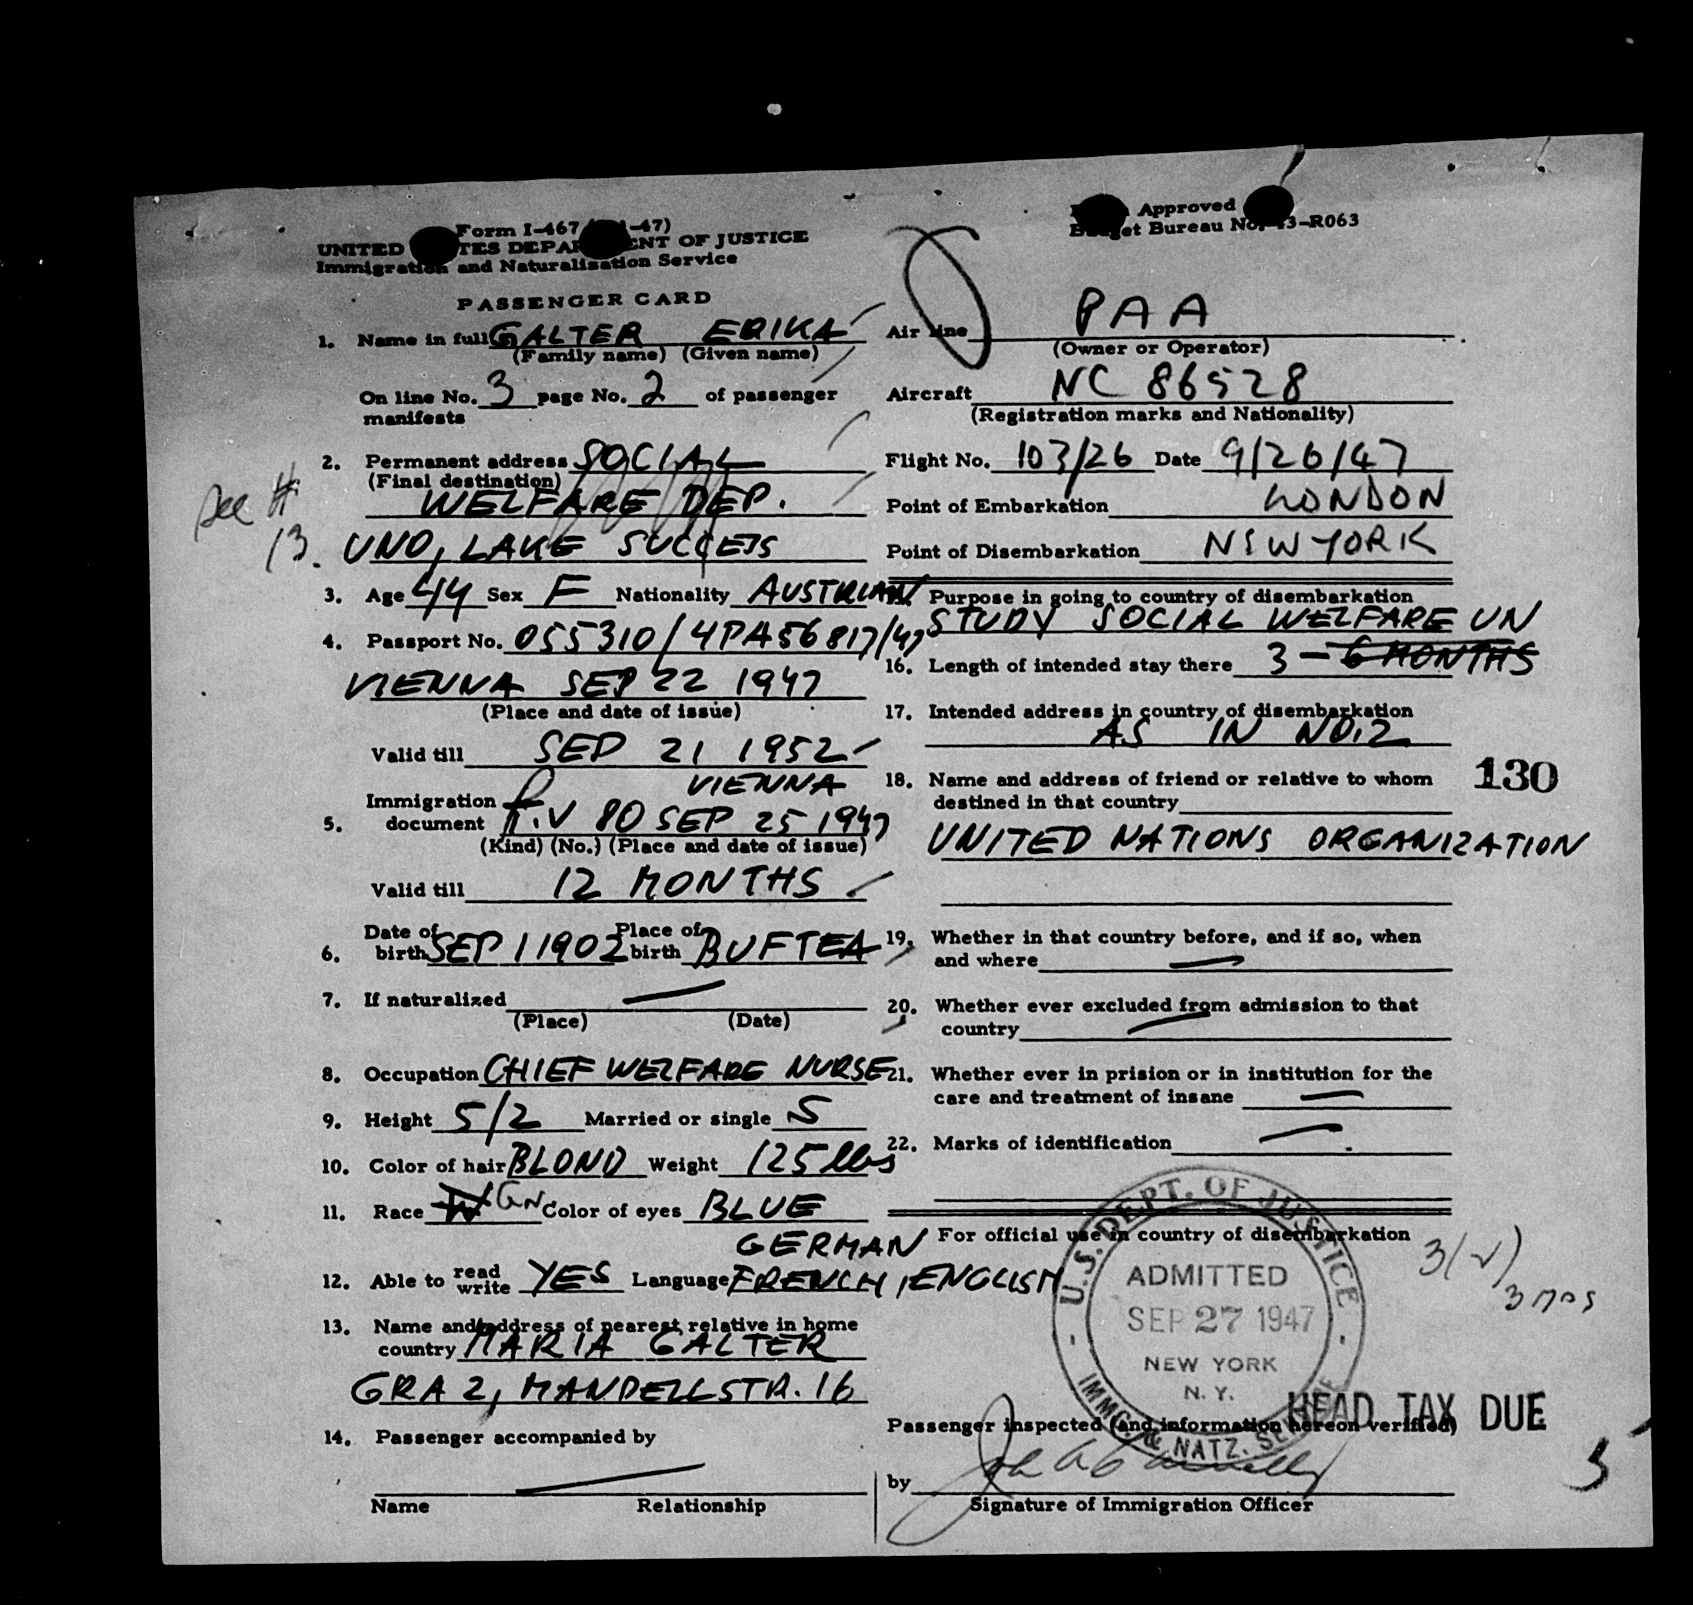 Form I-467 -47)
UNITED TES DEPA ENT OF JUSTICE
Immigration and Naturalization Service
PASSENGER CARD
1. Name in full GALTER ERIKA
(Family name) (Given name)
On line No. 3 page No. 2 of passenger
manifests
2. Permanent address SOCIAL
(Final destination)
WELFARE DEP.
see #
13.
UNO, LAKE SUCCESS
3. Age 44 Sex F Nationality AUSTRIAN
4. Passport No. 055310/4PA56817/47
VIENNA SEP 22 1947
(Place and date of issue)
Valid till SEP 21 1952
VIENNA
5. Immigration
document P.V 80 SEP 25 1947
(Kind) (No.) (Place and date of issue)
Valid till 12 MONTHS
6. Date of birth SEP 1 1902 Place of birth BUFTEA
7. If naturalized
(Place) (Date)
8. Occupation CHIEF WELFARE NURSE
9. Height 5/2 Married or single S
10. Color of hair BLOND Weight 125 lbs
11. Race W GN Color of eyes BLUE
GERMAN
12. Able to read write YES Language FRENCH, ENGLISH
13. Name and address of nearest relative in home
country MARIA GALTER
GRAZ, MANDELLSTR. 16
14. Passenger accompanied by
Name Relationship
Approved
Budget Bureau No. 43-R063
Air line PAA
(Owner or Operator)
Aircraft NC 86528
(Registration marks and Nationality)
Flight No. 103/26 Date 9/26/47
Point of Embarkation LONDON
Point of Disembarkation NEW YORK
Purpose in going to country of disembarkation
STUDY SOCIAL WELFARE UN
16. Length of intended stay there 3 - 6 MONTHS
17. Intended address in country of disembarkation
AS IN NO.2
18. Name and address of friend or relative to whom
destined in that country
130
UNITED NATIONS ORGANIZATION
19. Whether in that country before, and if so, when
and where
20. Whether ever excluded from admission to that
country
21. Whether ever in prision or in institution for the
care and treatment of insane
22. Marks of identification
For official use in country of disembarkation
U.S. DEPT. OF JUSTICE
ADMITTED
SEP 27 1947
NEW YORK
N. Y.
IMMG. & NATZ. SERVICE
3(v)
3 mos
HEAD TAX DUE
Passenger inspected (and information hereon verified)
by
Signature of Immigration Officer